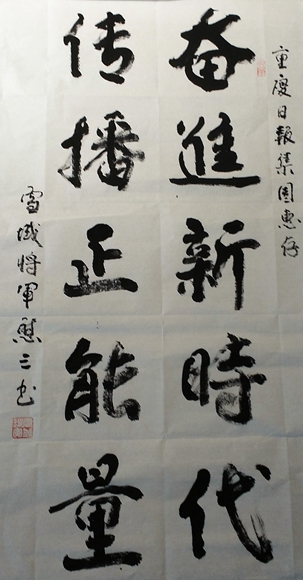 重庆日報集团惠存
奋進新時代
传播正能量
雪域将军慰三书